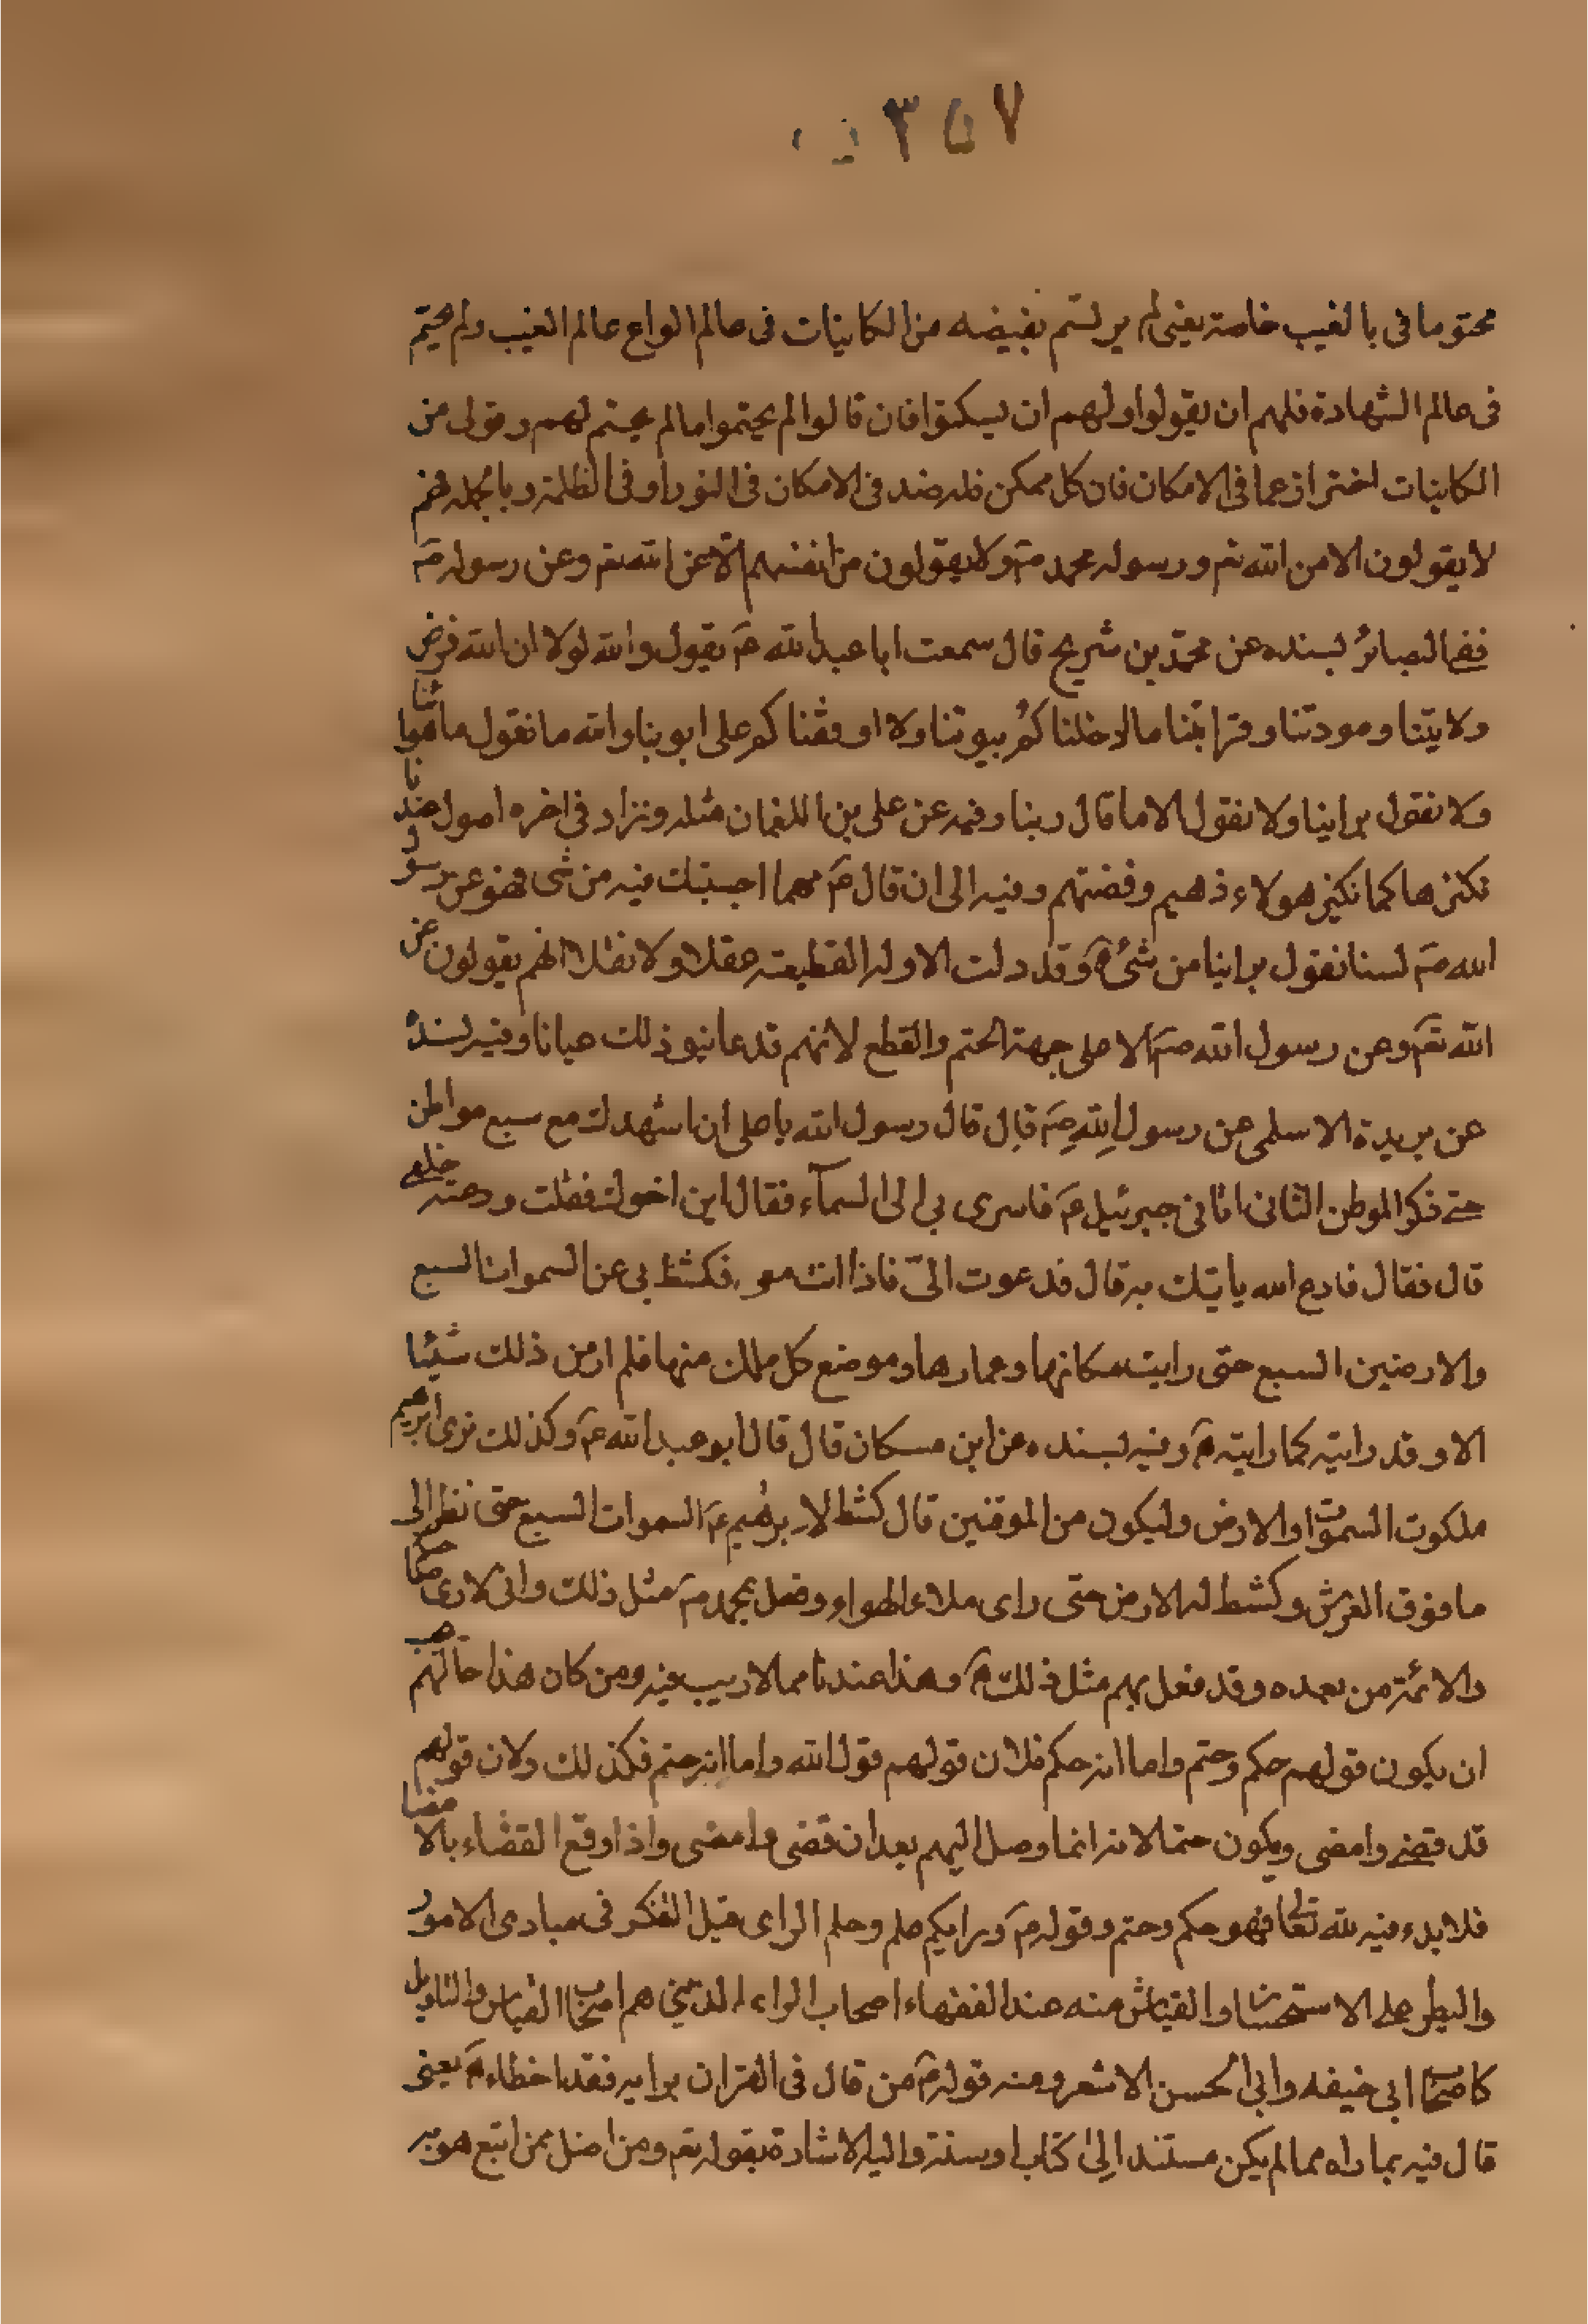 ٣٥٧
محتوما فى بالغيب خاصة يعنى لم يرتسم نقيضه من الكاينات فى عالم الواع عالم الغيب ولم يحتم
فى عالم الشهادة فلهم ان يقولوا ولهم ان يسكتوا فان قالوا لم يحتموا مالم يحتم لهم وقولى من
الكاينات احتراز عما فى الامكان فان كل ممكن فله ضد فى الامكان فى النور او فى الظلمة وبالجملة فهم
لا يقولون الا من الله تم ورسوله محمد صم ولا يقولون من انفسهم الا عن الله تم وعن رسوله صم
ففى البصائر بسنده عن محمد بن شريح قال سمعت ابا عبد الله عم يقول والله لولا ان الله فرض
ولايتنا ومودتنا وقرابتنا ما ادخلناكم بيوتنا ولا اوقفناكم على ابوابنا والله ما نقول باهوائنا
ولا نقول براينا ولا نقول الا ما قال ربنا وفيه عن على بن النعمان مثله وزاد فى اخره اصول عندنا
نكنزها كما نكنز هولاء ذهبهم وفضتهم وفيه الى ان قال عم مهما اجبتك فيه من شى فهو عن رسول
الله صم لسنا نقول براينا من شئ ه وقد دلت الاوله القطيعة عقلا ولا نقلا انهم يقولون عن
الله تم وعن رسول الله صم الا على جهة الحتم والقطع لانهم قد عاينوا ذلك عيانا وفيه بسنده
عن بريدة الاسلمى عن رسول الله صم قال قال رسول الله يا على ان اشهدك مع سبع مواطن
حتى ذكر الموطن الثانى اتانى جبرئيل عم فاسرى بى الى السمآء فقال اين اخوك فقلت ودعته خلفى
قال فقال فادع الله ياتيك به قال فدعوت الىّ فاذا انت معى فكشط بى عن السموات السبع
والارضين السبع حتى رايت مكانها وعمارها وموضع كل ملك منها فلم ار من ذلك شيئا
الا وقد رايته كما رايته ه وفيه بسنده عن ابن مسكان قال قال ابو عبد الله عم وكذلك نرى ابرهيم
ملكوت السموات والارض وليكون من الموقنين قال كشط لابرهيم عم السموات السبع حتى نظر الى
ما فوق العرش وكشط له الارض حتى راى ملاء الهواء وفعل بمحمد صم مثل ذلك وانى لارى صاحبكم
والائمة من بعده وقد فعل بهم مثل ذلك ه وهذا عندنا مما لاريب فيه ومن كان هذا حالهم يجب
ان يكون قولهم حكم وحتم واما انه حكم فلان قولهم قول الله واما انه حتم فكذلك ولان قولهم
قد قضى وامضى ويكون حتما لانه انما وصل اليهم بعد ان قضى وامضى واذا وقع القضاء بالامضا
فلا بدء فيه لله تعالى فهو حكم وحتم وقوله عم ورايكم علم وحلم الراى قيل التفكر فى مبادى الامور
والنظر على الاستحسان والقياس منه عند الفقهاء اصحاب الراء الذين هم اصحاب القياس والتاويل
كاصحاب ابى حنيفه وابى الحسن الاشعرى ومنه قوله عم من قال فى القران برايه فقد اخطاء ه يعنى
قال فيه بما راه مما لم يكن مستندا الى كتاب او سنة واليه الاشارة بقوله تم ومن اضل ممن اتبع هويه